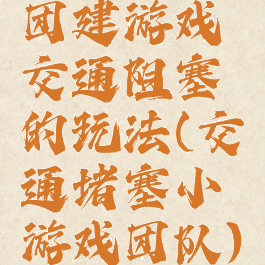 团建游戏
交通阻塞
的玩法(交
通堵塞小
游戏团队)